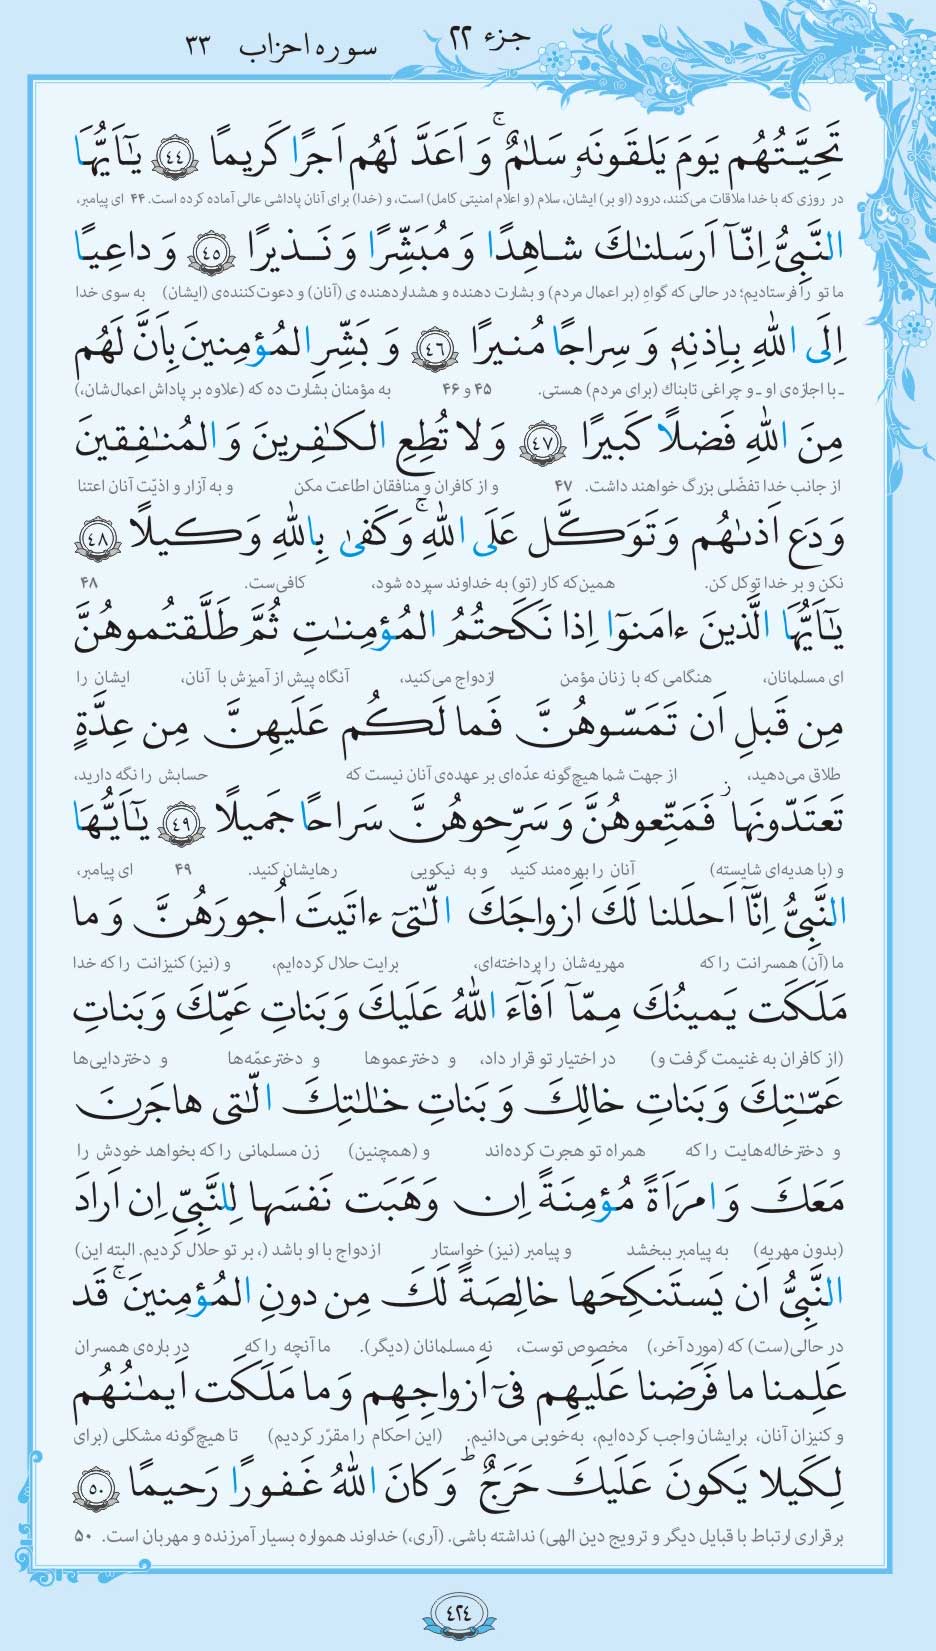 جزء ۲۲
سوره احزاب ۳۳
تَحِيَّتُهُم يَومَ يَلقَونَهٗ سَلٰمٌ ۚ وَ اَعَدَّ لَهُم اَجرًا كَريمًا ﴿٤٤﴾ يٰٓاَيُّهَا
در روزی که با خدا ملاقات می‌کنند، درود (او بر) ایشان، سلام (و اعلام امنیتی کامل) است، و (خدا) برای آنان پاداشی عالی آماده کرده است. ۴۴ ای پیامبر،
النَّبِيُّ اِنّآ اَرسَلنٰكَ شاهِدًا وَ مُبَشِّرًا وَ نَذيرًا ﴿٤٥﴾ وَ داعِيًا
ما تو را فرستادیم؛ در حالی که گواهِ (بر اعمال مردم) و بشارت دهنده و هشداردهنده ی (آنان) و دعوت‌کننده‌ی (ایشان) به سوی خدا
اِلَى اللّٰهِ بِاِذنِهٖ وَ سِراجًا مُنيرًا ﴿٤٦﴾ وَ بَشِّرِ المُؤمِنينَ بِاَنَّ لَهُم
ـ با اجازه‌ی او ـ و چراغی تابناك (برای مردم) هستی. ۴۵ و ۴۶ به مؤمنان بشارت ده که (علاوه بر پاداش اعمال‌شان،)
مِنَ اللّٰهِ فَضلًا كَبيرًا ﴿٤٧﴾ وَ لا تُطِعِ الكٰفِرينَ وَ المُنٰفِقينَ
از جانب خدا تفضّلی بزرگ خواهند داشت. ۴۷ و از کافران و منافقان اطاعت مکن و به آزار و اذیّت آنان اعتنا
وَ دَع اَذىٰهُم وَ تَوَكَّل عَلَى اللّٰهِ ۚ وَ كَفىٰ بِاللّٰهِ وَكيلًا ﴿٤٨﴾
نکن و بر خدا توکل کن. همین‌که کار (تو) به خداوند سپرده شود، کافی‌ست. ۴۸
يٰٓاَيُّهَا الَّذينَ ءامَنوٓا اِذا نَكَحتُمُ المُؤمِنٰتِ ثُمَّ طَلَّقتُموهُنَّ
ای مسلمانان، هنگامی که با زنان مؤمن ازدواج می‌کنید، آنگاه پیش از آمیزش با آنان، ایشان را
مِن قَبلِ اَن تَمَسّوهُنَّ فَما لَكُم عَلَيهِنَّ مِن عِدَّةٍ
طلاق می‌دهید، از جهت شما هیچ‌گونه عدّه‌ای بر عهده‌ی آنان نیست که حسابش را نگه دارید،
تَعتَدّونَها ۖ فَمَتِّعوهُنَّ وَ سَرِّحوهُنَّ سَراحًا جَميلًا ﴿٤٩﴾ يٰٓاَيُّهَا
و (با هدیه‌ای شایسته) آنان را بهره‌مند کنید و به نیکویی رهایشان کنید. ۴۹ ای پیامبر،
النَّبِيُّ اِنّآ اَحلَلنا لَكَ اَزواجَكَ الّٰتيٓ ءاتَيتَ اُجورَهُنَّ وَ ما
ما (آن) همسرانت را که مهریه‌شان را پرداخته‌ای، برایت حلال کرده‌ایم، و (نیز) کنیزانت را که خدا
مَلَكَت يَمينُكَ مِمّآ اَفآءَ اللّٰهُ عَلَيكَ وَ بَناتِ عَمِّكَ وَ بَناتِ
(از کافران به غنیمت گرفت و) در اختیار تو قرار داد، و دخترعموها و دخترعمّه‌ها و دختردایی‌ها
عَمّٰتِكَ وَ بَناتِ خالِكَ وَ بَناتِ خٰلٰتِكَ الّٰتي هاجَرنَ
و دخترخاله‌هایت را که همراه تو هجرت کرده‌اند و (همچنین) زن مسلمانی را که بخواهد خودش را
مَعَكَ وَ امرَاَةً مُؤمِنَةً اِن وَهَبَت نَفسَها لِلنَّبِيِّ اِن اَرادَ
(بدون مهریه) به پیامبر ببخشد و پیامبر (نیز) خواستار ازدواج با او باشد (، بر تو حلال کردیم. البته این)
النَّبِيُّ اَن يَستَنكِحَها خالِصَةً لَكَ مِن دونِ المُؤمِنينَ ۚ قَد
در حالی(ست) که (مورد آخر،) مخصوص توست، نه مسلمانان (دیگر). ما آنچه را که درباره‌ی همسران
عَلِمنا ما فَرَضنا عَلَيهِم فيٓ اَزواجِهِم وَ ما مَلَكَت اَيمٰنُهُم
و کنیزان آنان، برایشان واجب کرده‌ایم، به‌خوبی می‌دانیم. (این احکام را مقرّر کردیم) تا هیچ‌گونه مشکلی (برای
لِكَيلا يَكونَ عَلَيكَ حَرَجٌ ۗ وَ كانَ اللّٰهُ غَفورًا رَحيمًا ﴿٥٠﴾
برقراری ارتباط با قبایل دیگر و ترویج دین الهی) نداشته باشی. (آری،) خداوند همواره بسیار آمرزنده و مهربان است. ۵۰
۴۲۴